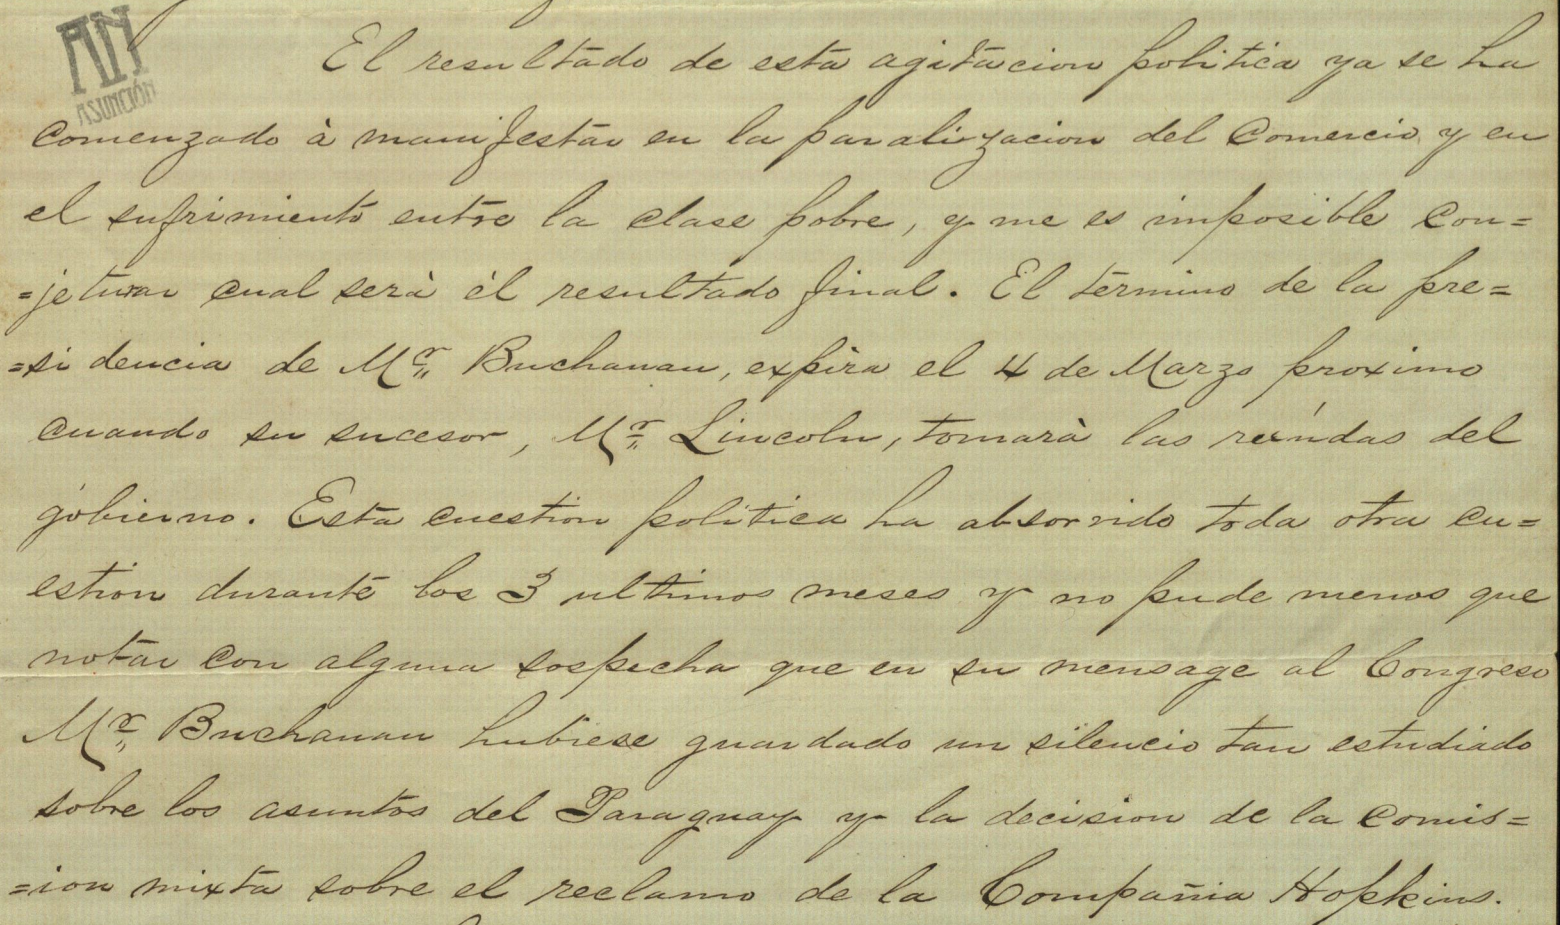 AN
ASUNCIÓN
El resultado de esta agitacion politica ya se ha
comenzado à manifestar en la paralizacion del Comercio y en
el sufrimiento entre la clase pobre, y me es imposible con=
=jeturar cual serà él resultado final. El termino de la pre=
=si dencia de Mr. Buchanan, expira el 4 de Marzo proximo
cuando su sucesor, Mr. Lincoln, tomarà las reindas del
gobierno. Esta cuestion politica ha absorvido toda otra cu=
estion durante los 3 ultimos meses y no pude menos que
notar con alguna sospecha que en su mensage al Congreso
Mr. Buchanan hubiese guardado un silencio tan estudiado
sobre los asuntos del Paraguay y la decision de la Comis=
=ion mixta sobre el reclamo de la Compañia Hopkins.